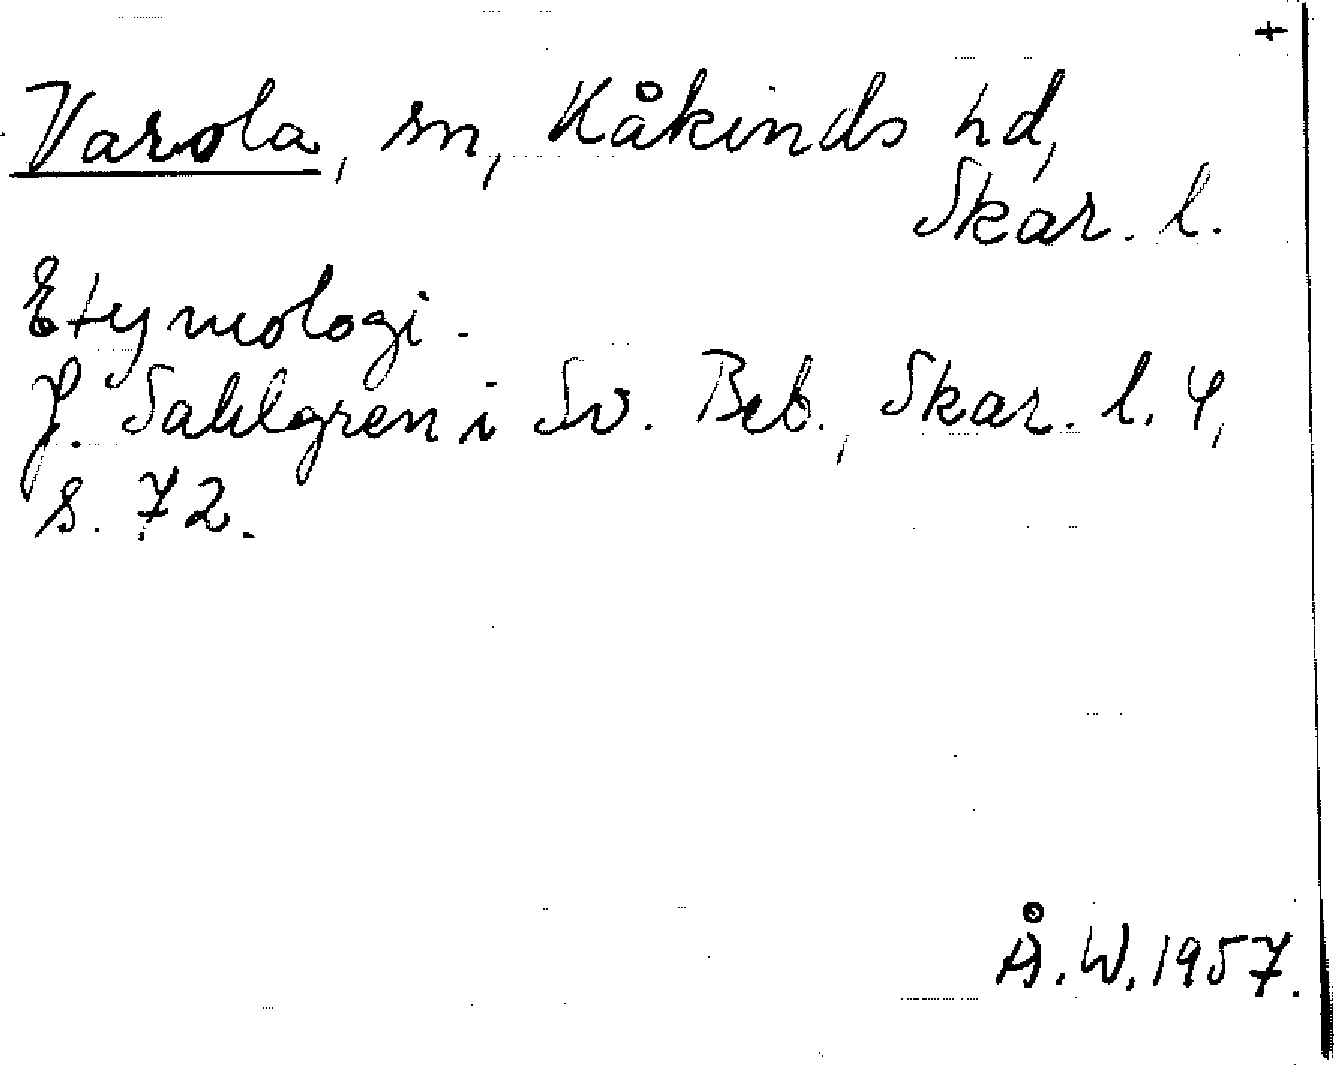 +
Varola, sn, Kåkinds hd,
Skar. l.
Etymologi.
J. Sahlgren i Sv. Beb., Skar. l. 4,
s. 72.
Å. W. 1957.